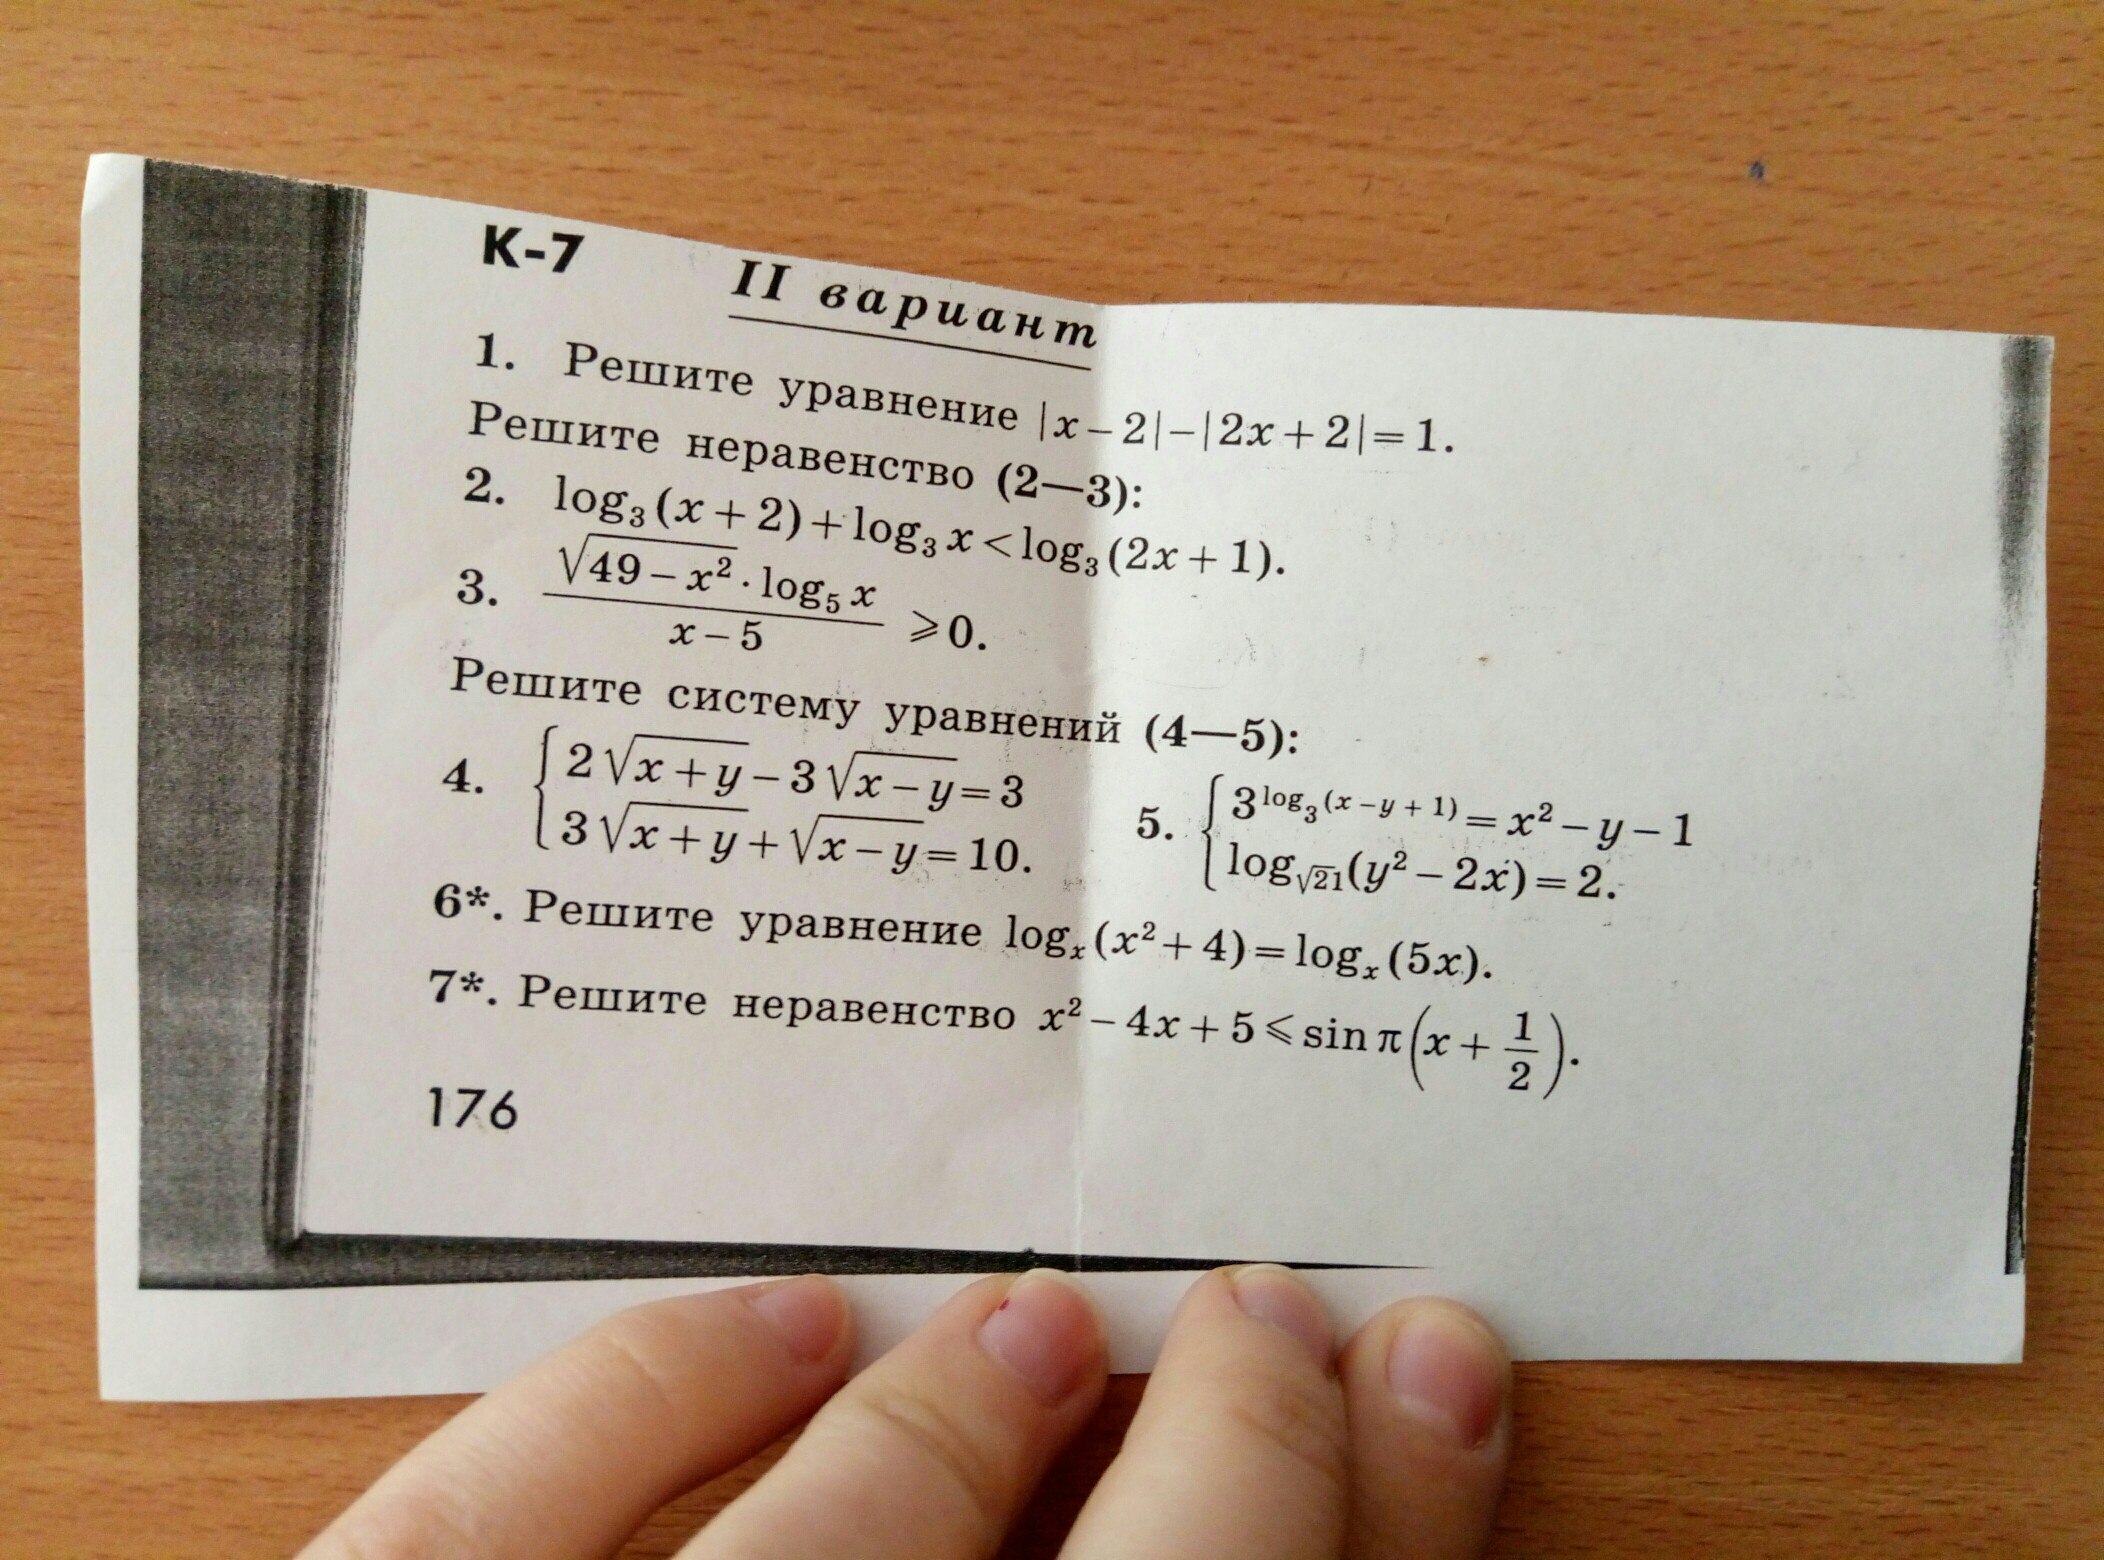 К-7
II вариант
1. Решите уравнение |x – 2| – |2x + 2| = 1.
Решите неравенство (2—3):
2. log₃(x + 2) + log₃ x < log₃(2x + 1).
3. (√(49 – x²) · log₅ x)/(x – 5) ⩾ 0.
Решите систему уравнений (4—5):
4. { 2√(x + y) – 3√(x – y) = 3
3√(x + y) + √(x – y) = 10.
5. { 3^(log₃(x – y + 1)) = x² – y – 1
log_√21(y² – 2x) = 2.
6*. Решите уравнение logₓ(x² + 4) = logₓ(5x).
7*. Решите неравенство x² – 4x + 5 ⩽ sin π(x + 1/2).
176